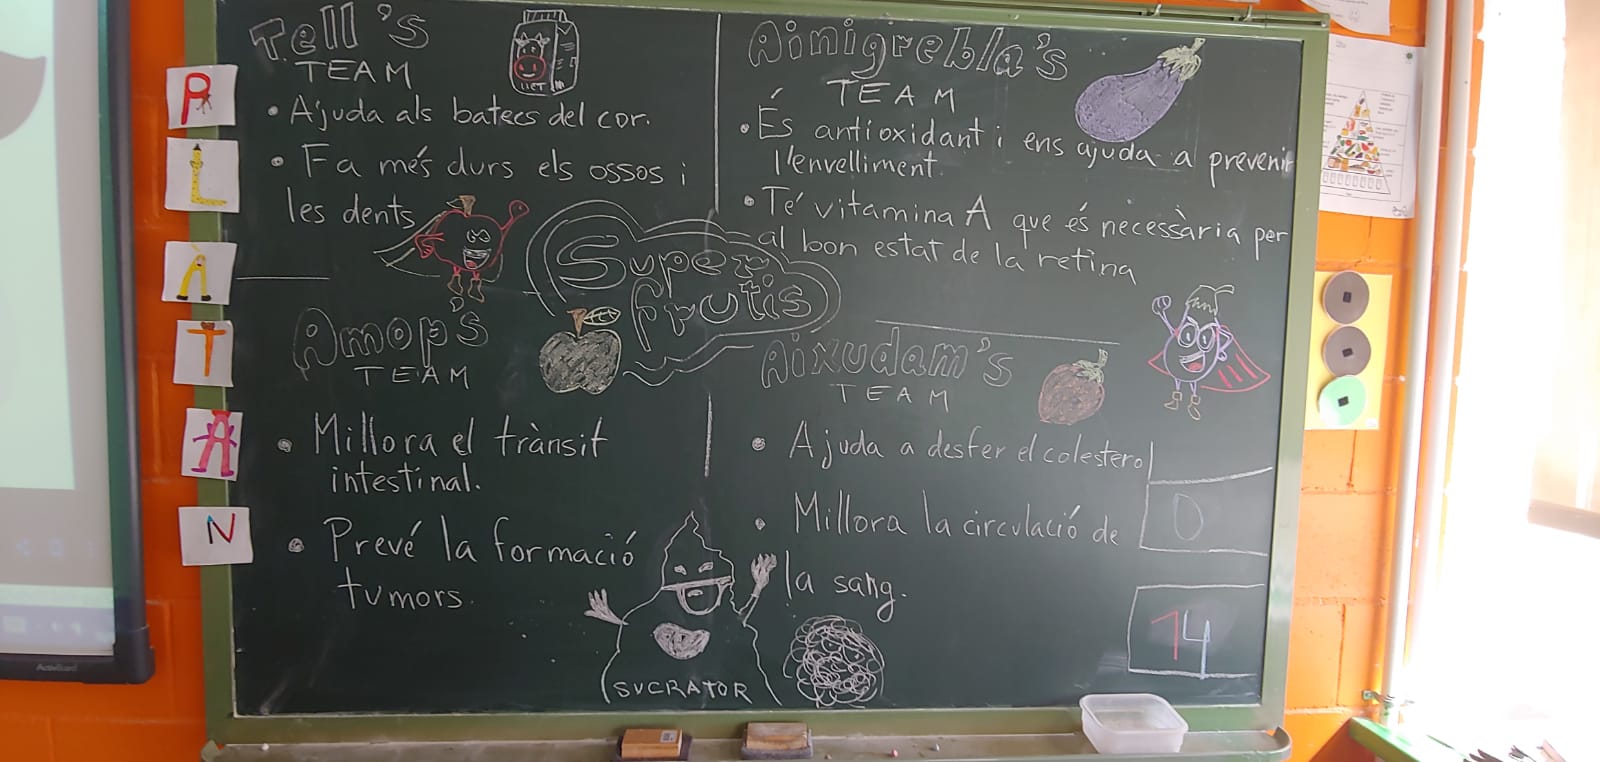 P
L
A
T
A
N
Tell's
TEAM
LLET
• Ajuda als batecs del cor.
• Fa més durs els ossos i
les dents
Ainigrebla's
TEAM
• És antioxidant i ens ajuda a prevenir
l'envelliment.
• Té vitamina A que és necessària per
al bon estat de la retina
Super
frutis
Amop's
TEAM
• Millora el trànsit
intestinal.
• Prevé la formació
tumors.
Aixudam's
TEAM
• Ajuda a desfer el colesterol
• Millora la circulació de
la sang.
SUCRATOR
0
14
ActivBoard